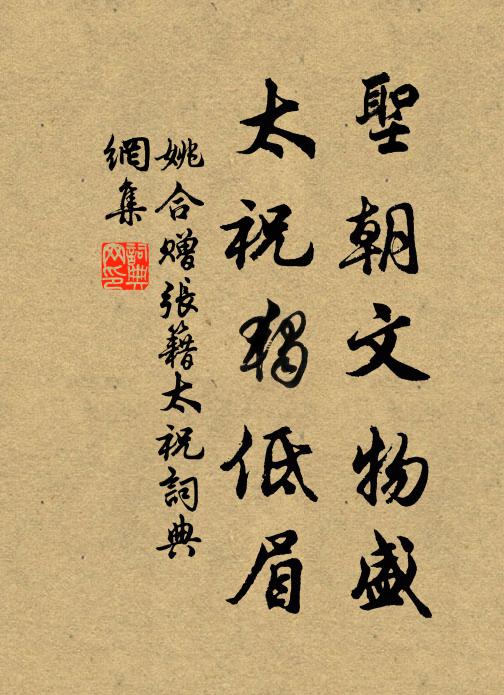 聖朝文物盛
太祝獨低眉
姚合贈張籍太祝詞典
網集
詞典網印